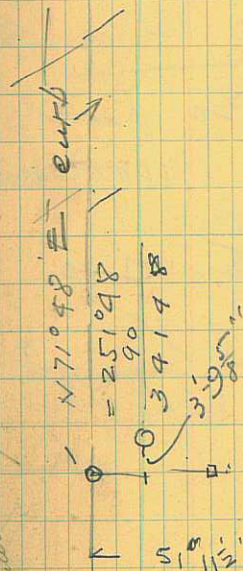 N71°48 E curb
= 251°48
90
341 48
3'-9 5/8"
5'